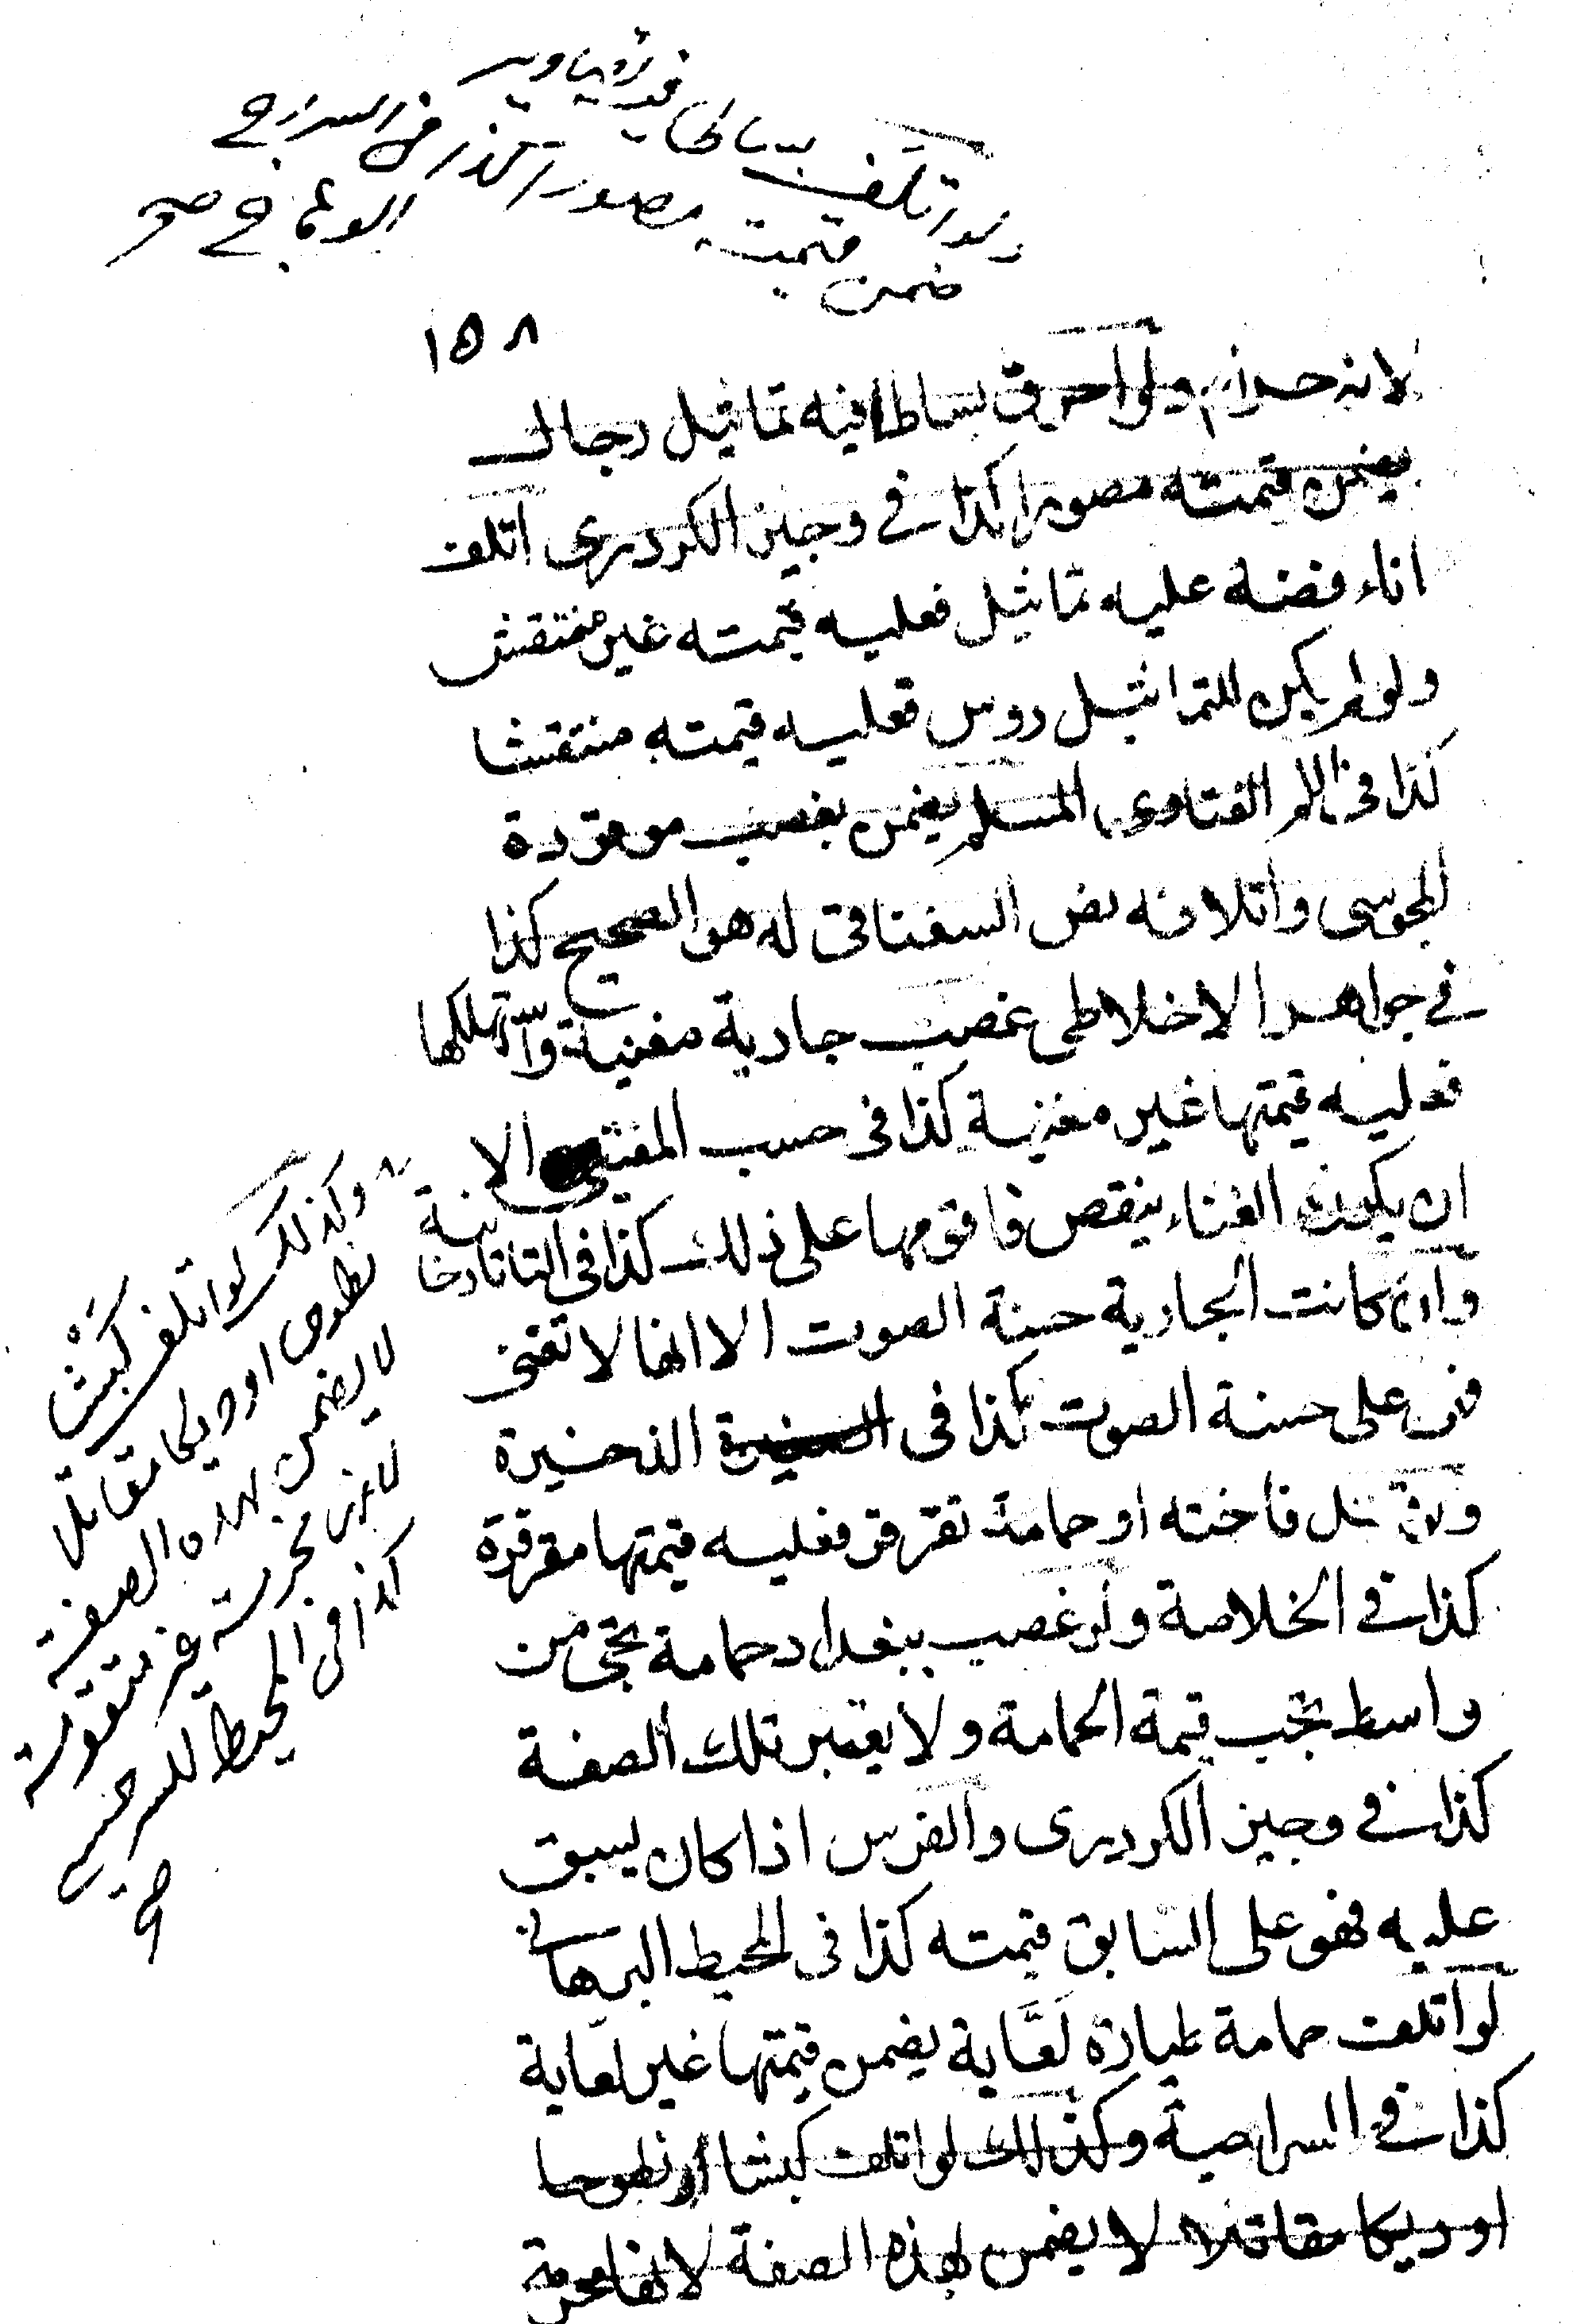 ولو اتلف بساطا فيه تصاوير
ضمن قيمته مصورا كذا في السراج
الوهاج صح
١٥٨
لانه حرام ولو احرق بساطا فيه تماثيل رجال
يضمن قيمته مصورا كذا في وجيز الكردرى اتلف
اناء فضة عليه تماثيل فعليه قيمته غير منتقش
ولو لم يكن للتماثيل روس فعليه قيمته منتقشا
كذا في الفتاوى المسلم يضمن بغصب موقودة
المجوسى واتلافه نص السغناقى له هو الصحيح كذا
في جواهر الاخلاطى غصب جارية مغنية واستهلكها
فعليه قيمتها غير مغنية كذا فى حسب المفتى الا
ان يكون الغناء ينقص فاقومها على ذلك كذا فى التاتارخانية
وان كانت الجارية حسنة الصوت الا انها لا تغنى
فهى على حسنة الصوت كذا فى الذخيرة
ولو قتل فاخته او حمامة تقرقر فعليه قيمتها مقرقرة
كذا في الخلاصة ولو غصب ببغداد حمامة تجئ من
واسط تجب قيمة الحمامة ولا يعتبر تلك الصفة
كذا في وجيز الكردرى والفرس اذا كان يسبق
عليه فهو على السابق قيمته كذا فى المحيط البرهانى
لو اتلف حمامة طيارة لعّابة يضمن قيمتها غير لعابة
كذا في السراجية وكذلك لو اتلف كبشا نطوحا
او ديكا مقاتلا لا يضمن لهذه الصفة لانها محرمة
وكذلك لو اتلف كبشا
نطوحا او ديكا مقاتلا
لا يضمن بهذه الصفة
لانها محرمة غير متقومة
كذا فى المحيط للسرخسى
صح